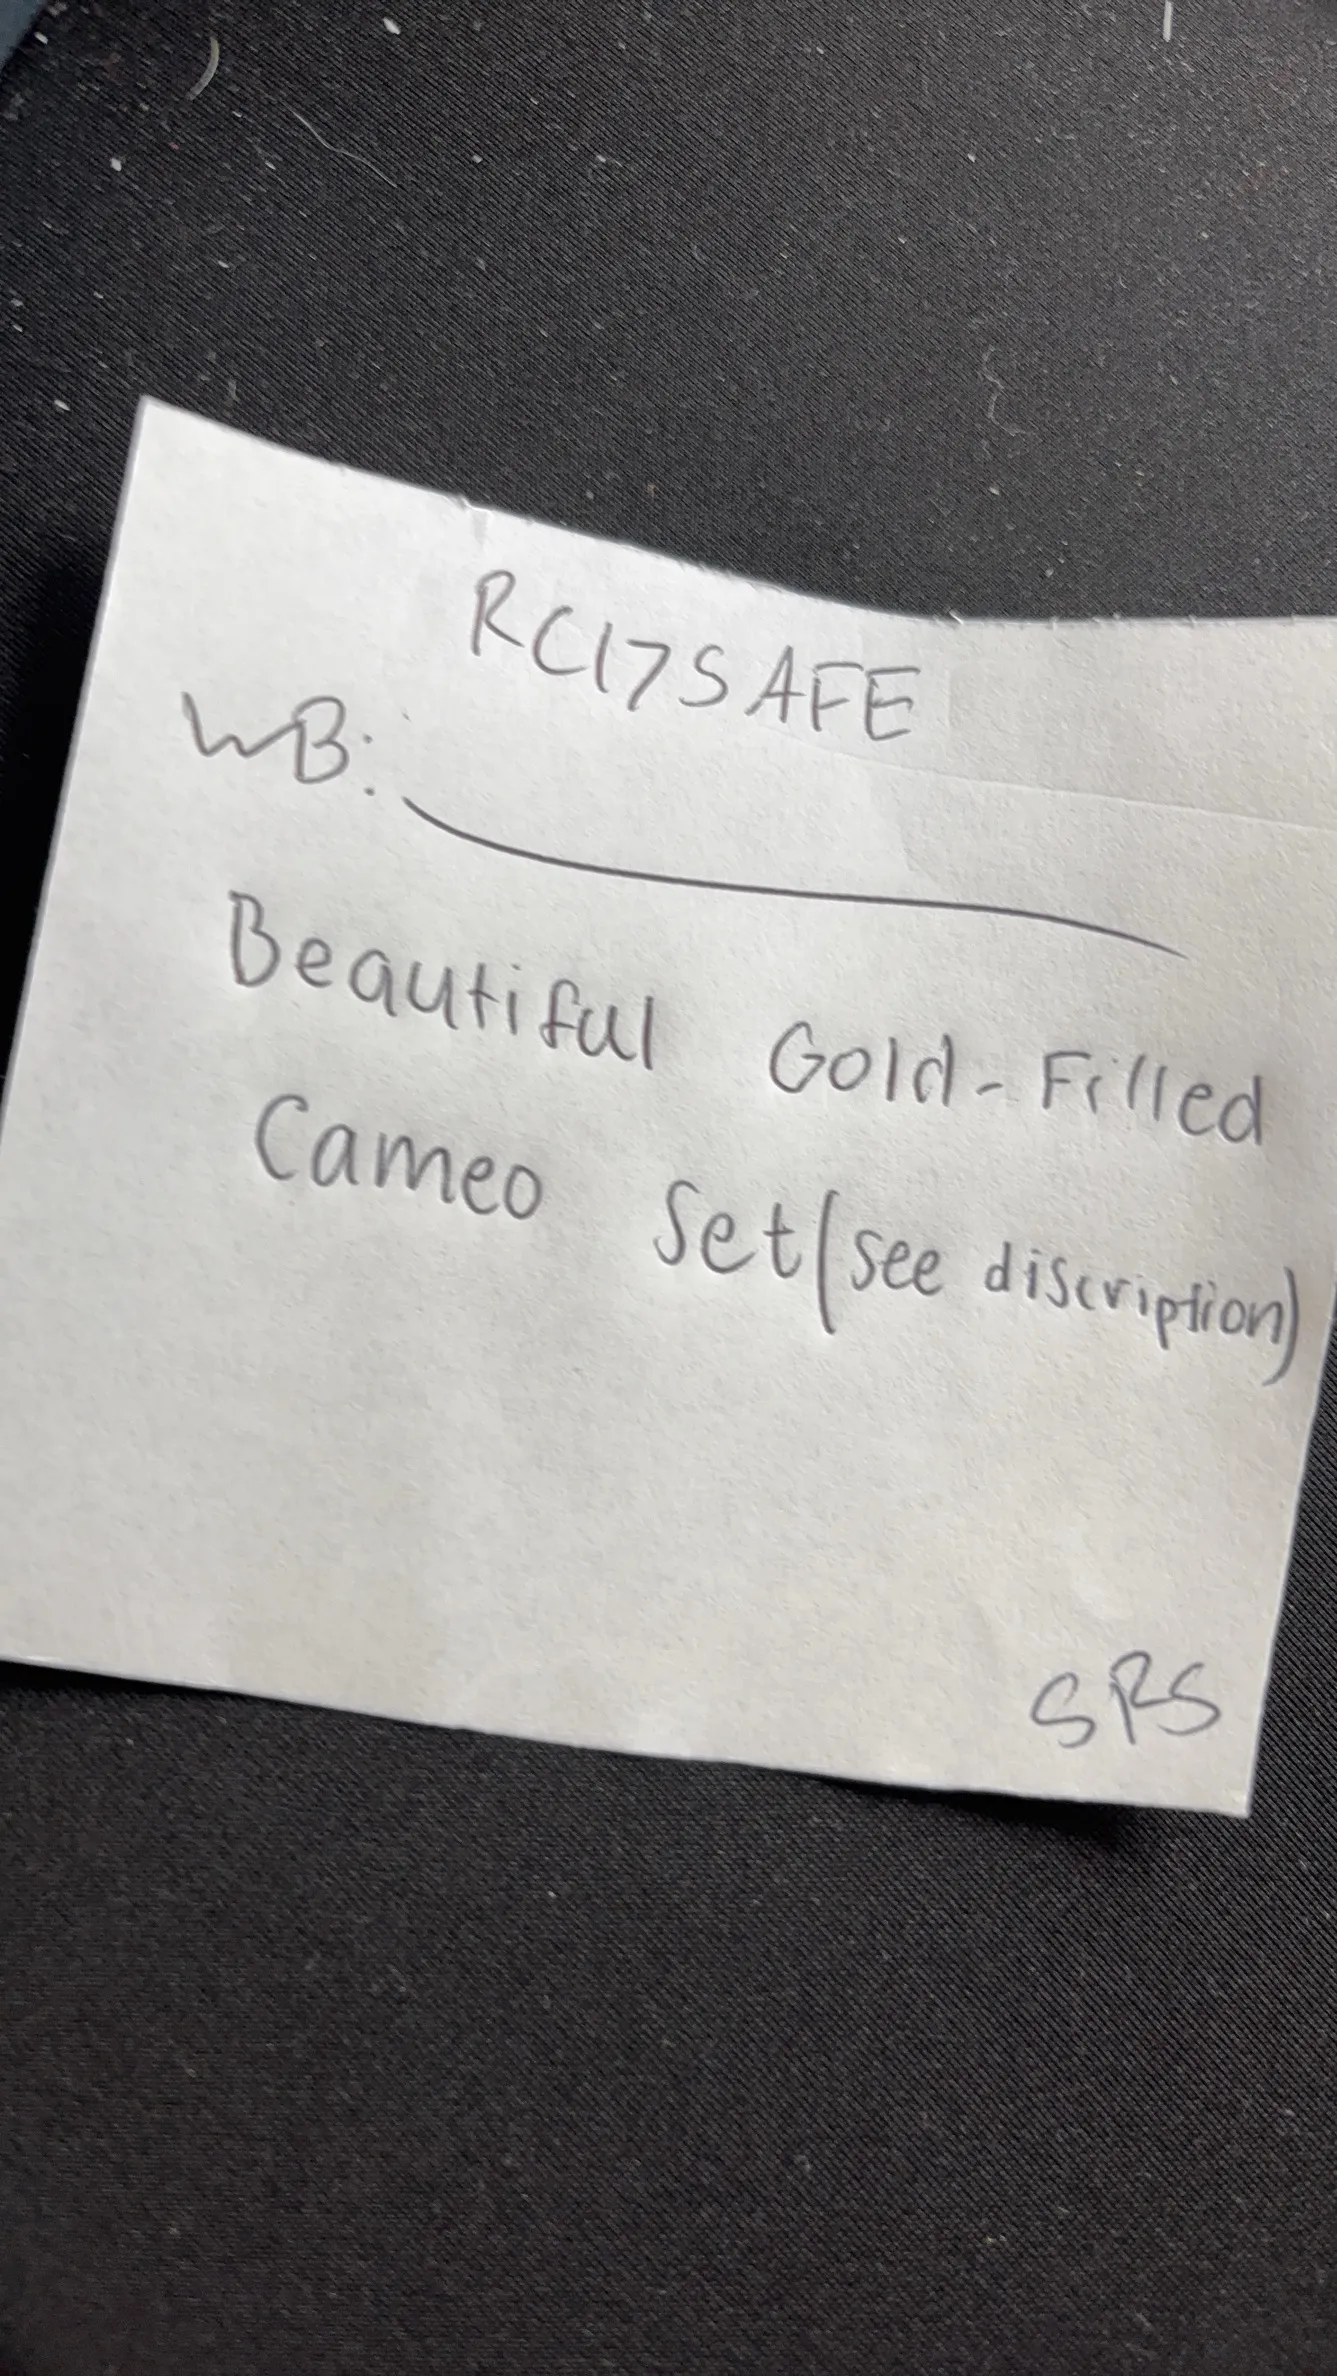 RC17SAFE
WB:
Beautiful Gold-Filled
Cameo Set (see discription)
SRS